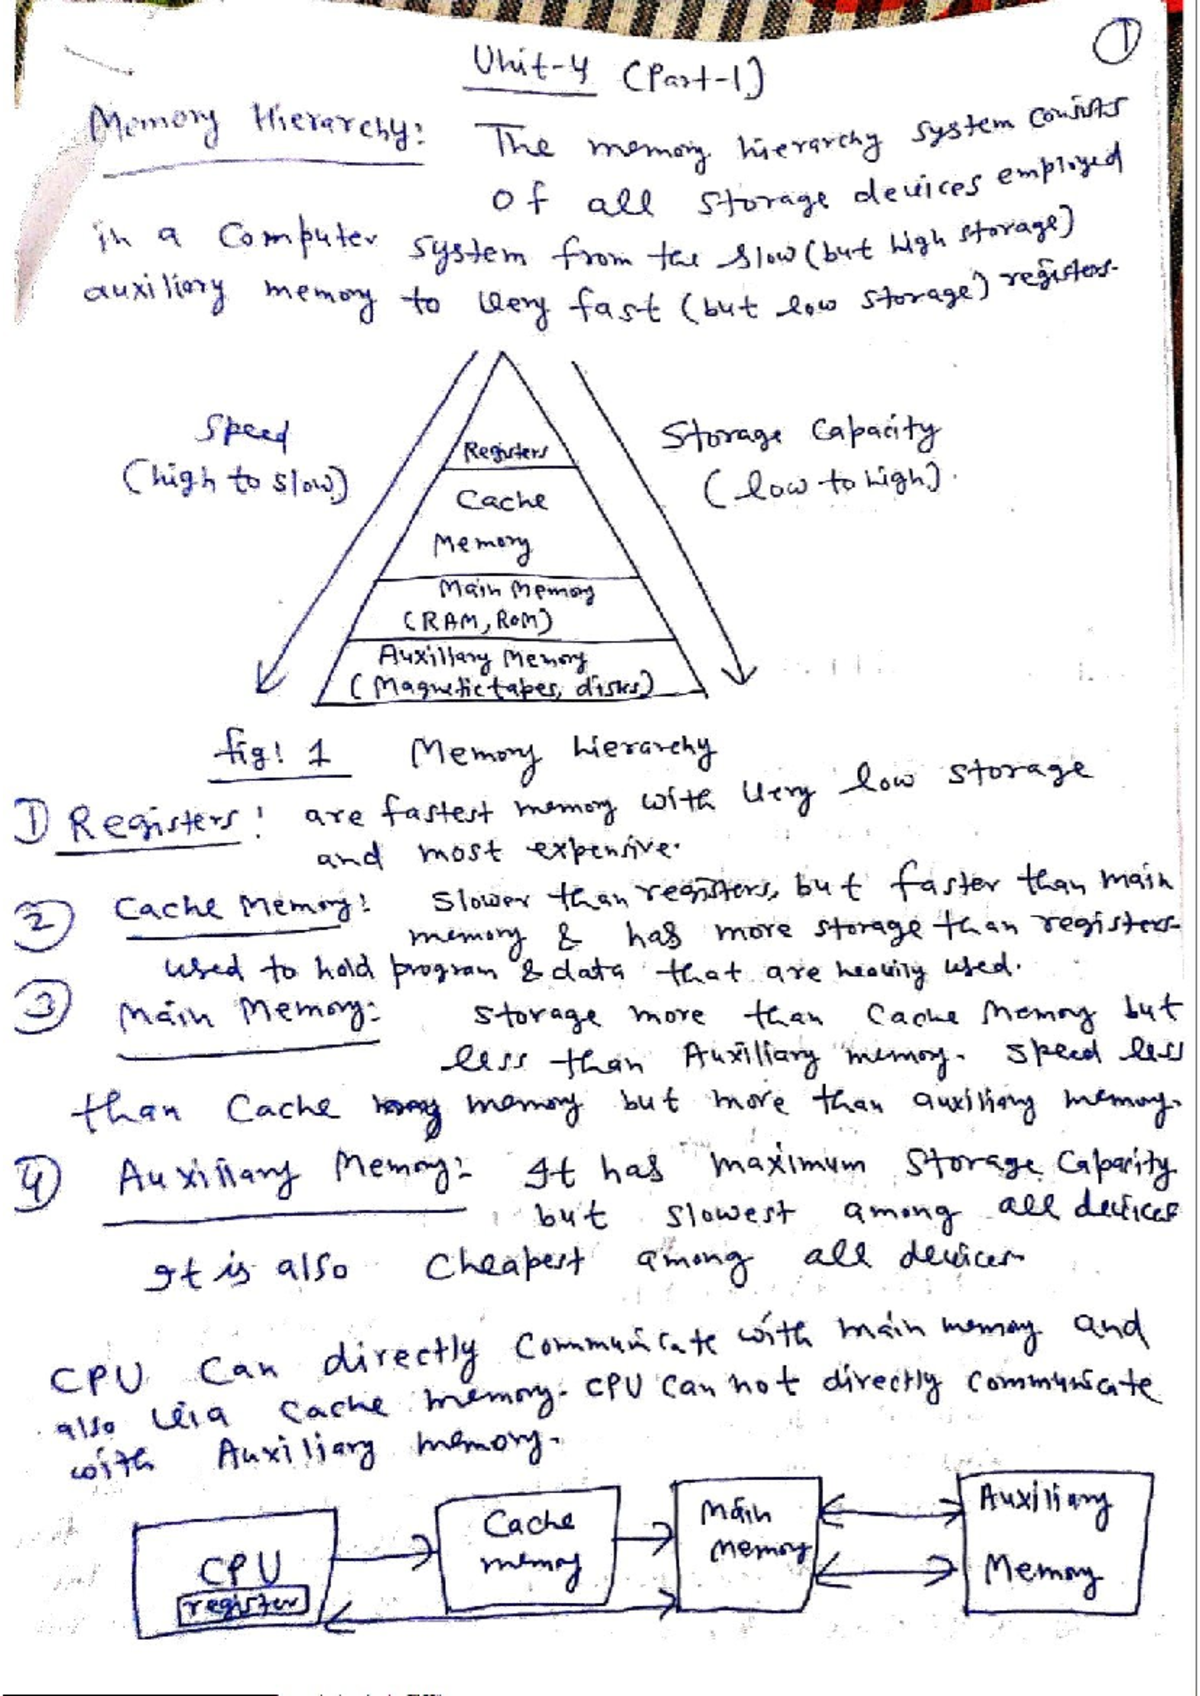 1
Unit-4 (Part-1)
Memory Hierarchy: The memory hierarchy system consists
of all storage devices employed
in a Computer system from the slow (but high storage)
auxiliary memory to very fast (but low storage) registers.
Speed
(high to slow)
Storage Capacity
(low to high).
Registers
Cache
Memory
Main Memory
(RAM, ROM)
Auxillary Memory
(Magnetic tapes, disks)
fig: 1 Memory hierarchy
1) Registers: are fastest memory with very low storage
and most expensive.
2 Cache Memory: Slower than registers, but faster than main
memory & has more storage than registers.
used to hold program & data that are heavily used.
3 Main Memory: Storage more than Cache Memory but
less than Auxiliary memory. Speed less
than Cache memory but more than auxiliary memory.
4) Auxiliary Memory: It has maximum Storage Capacity
but slowest among all devices
It is also Cheapest among all devices
CPU Can directly Communicate with main memory and
also via Cache memory. CPU Can not directly communicate
with Auxiliary memory.
CPU
register
Cache
memory
Main
memory
Auxiliary
Memory